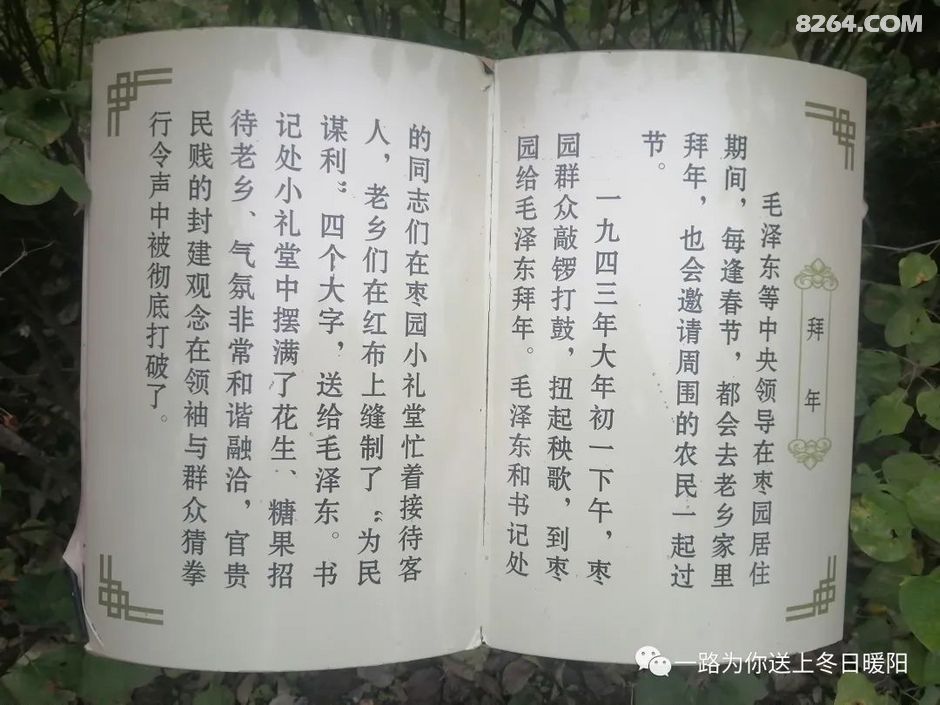 8264.COM
拜年
毛泽东等中央领导在枣园居住
期间，每逢春节，都会去老乡家里
拜年，也会邀请周围的农民一起过
节。
一九四三年大年初一下午，枣
园群众敲锣打鼓，扭起秧歌，到枣
园给毛泽东拜年。毛泽东和书记处
的同志们在枣园小礼堂忙着接待客
人，老乡们在红布上缝制了“为民
谋利”四个大字，送给毛泽东。书
记处小礼堂中摆满了花生、糖果招
待老乡、气氛非常和谐融洽，官贵
民贱的封建观念在领袖与群众猜拳
行令声中被彻底打破了。
一路为你送上冬日暖阳